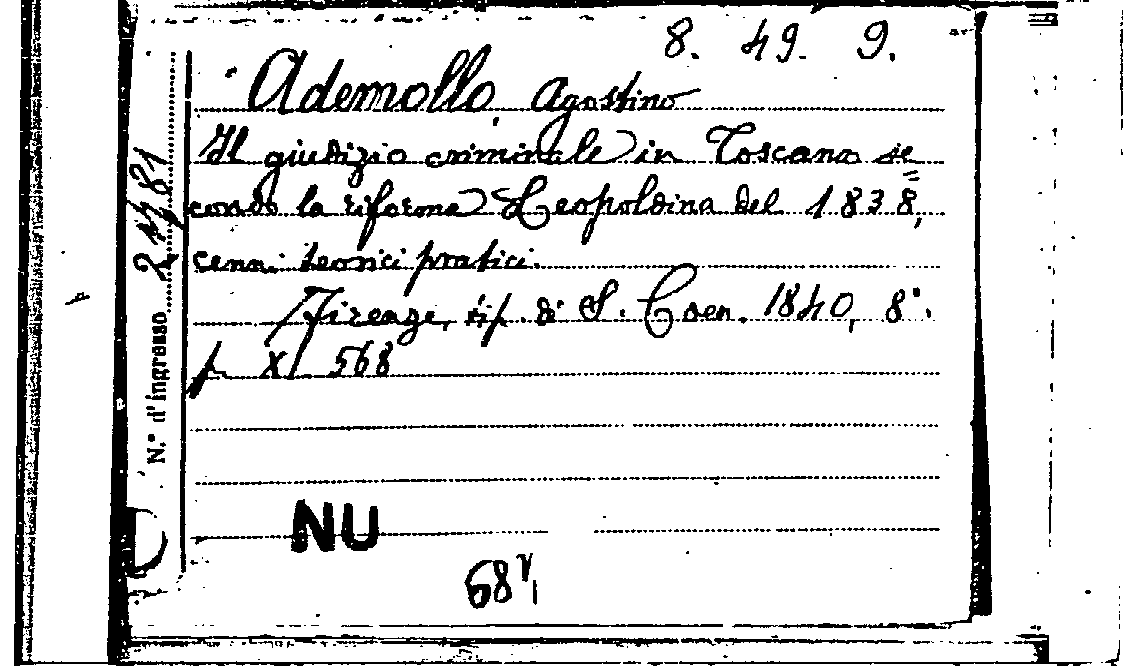 8. 49. 9.
Ademollo, Agostino
Il giudizio criminale in Toscana se=
condo la riforma Leopoldina del 1838,
cenni teorici pratici.
Firenze, tip. di S. Coen. 1840, 8°.
p. XI 568
N.° d'ingresso
NU